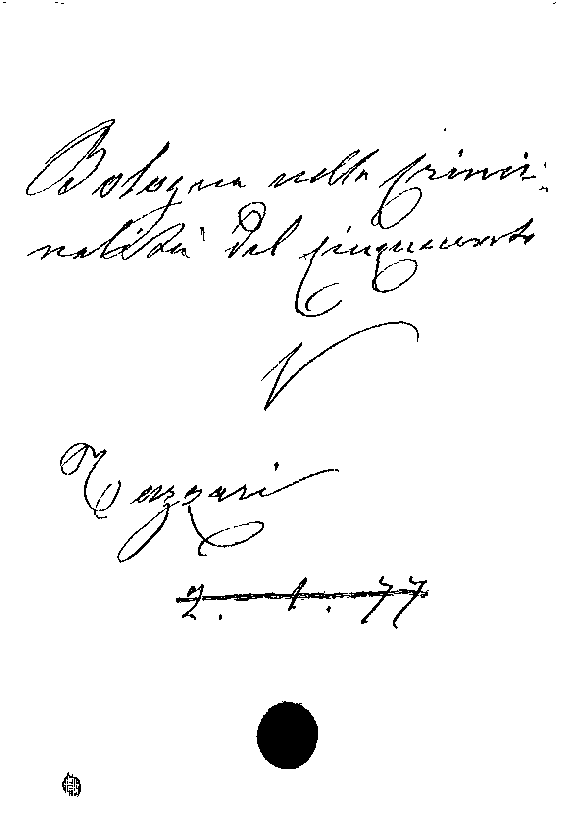 Bologna nella Crimi-
nalità del Cinquecento
V
Tazzari
2. 1. 77